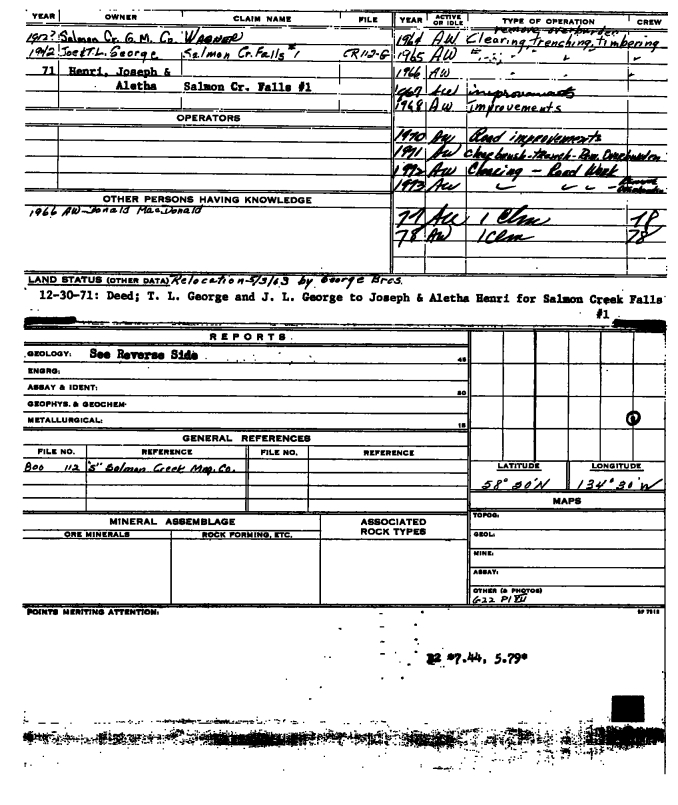 YEAR OWNER CLAIM NAME FILE
1912? Salmon Cr. G.M. Co. WAGNER
1942 Joe & T.L. George Salmon Cr. Falls #1 CR112-G
71 Henri, Joseph &
Aletha Salmon Cr. Falls #1
OPERATORS
OTHER PERSONS HAVING KNOWLEDGE
1966 AW-Donald MacDonald
YEAR ACTIVE OR IDLE TYPE OF OPERATION CREW
remove overburden
1964 AW Clearing, trenching, timbering
1965 AW " " "
1966 AW " "
1967 AW improvements
1968 AW Improvements
1970 AW Road improvements
1971 AW Clear brush-trench-Rem. Overburden
1972 AW Clearing - Road Work
1973 AW " " " - Remove Overburden
77 AW 1 Clm 78
78 AW 1 Clm 78
LAND STATUS (OTHER DATA) Relocation-5/3/63 by George Bros.
12-30-71: Deed; T. L. George and J. L. George to Joseph & Aletha Henri for Salmon Creek Falls
#1
REPORTS
GEOLOGY: See Reverse Side 45
ENGRG:
ASSAY & IDENT: 30
GEOPHYS. & GEOCHEM:
METALLURGICAL: 15
GENERAL REFERENCES
FILE NO. REFERENCE FILE NO. REFERENCE
Boo 112 "S" Salmon Creek Mng. Co.
LATITUDE LONGITUDE
58° 20'N 134° 30'W
MAPS
TOPOG:
GEOL:
MINE:
ASSAY:
OTHER (& PHOTOS)
G22 Pl VII
MINERAL ASSEMBLAGE
ASSOCIATED ROCK TYPES
ORE MINERALS ROCK FORMING, ETC.
POINTS MERITING ATTENTION:
7.44, 5.79*